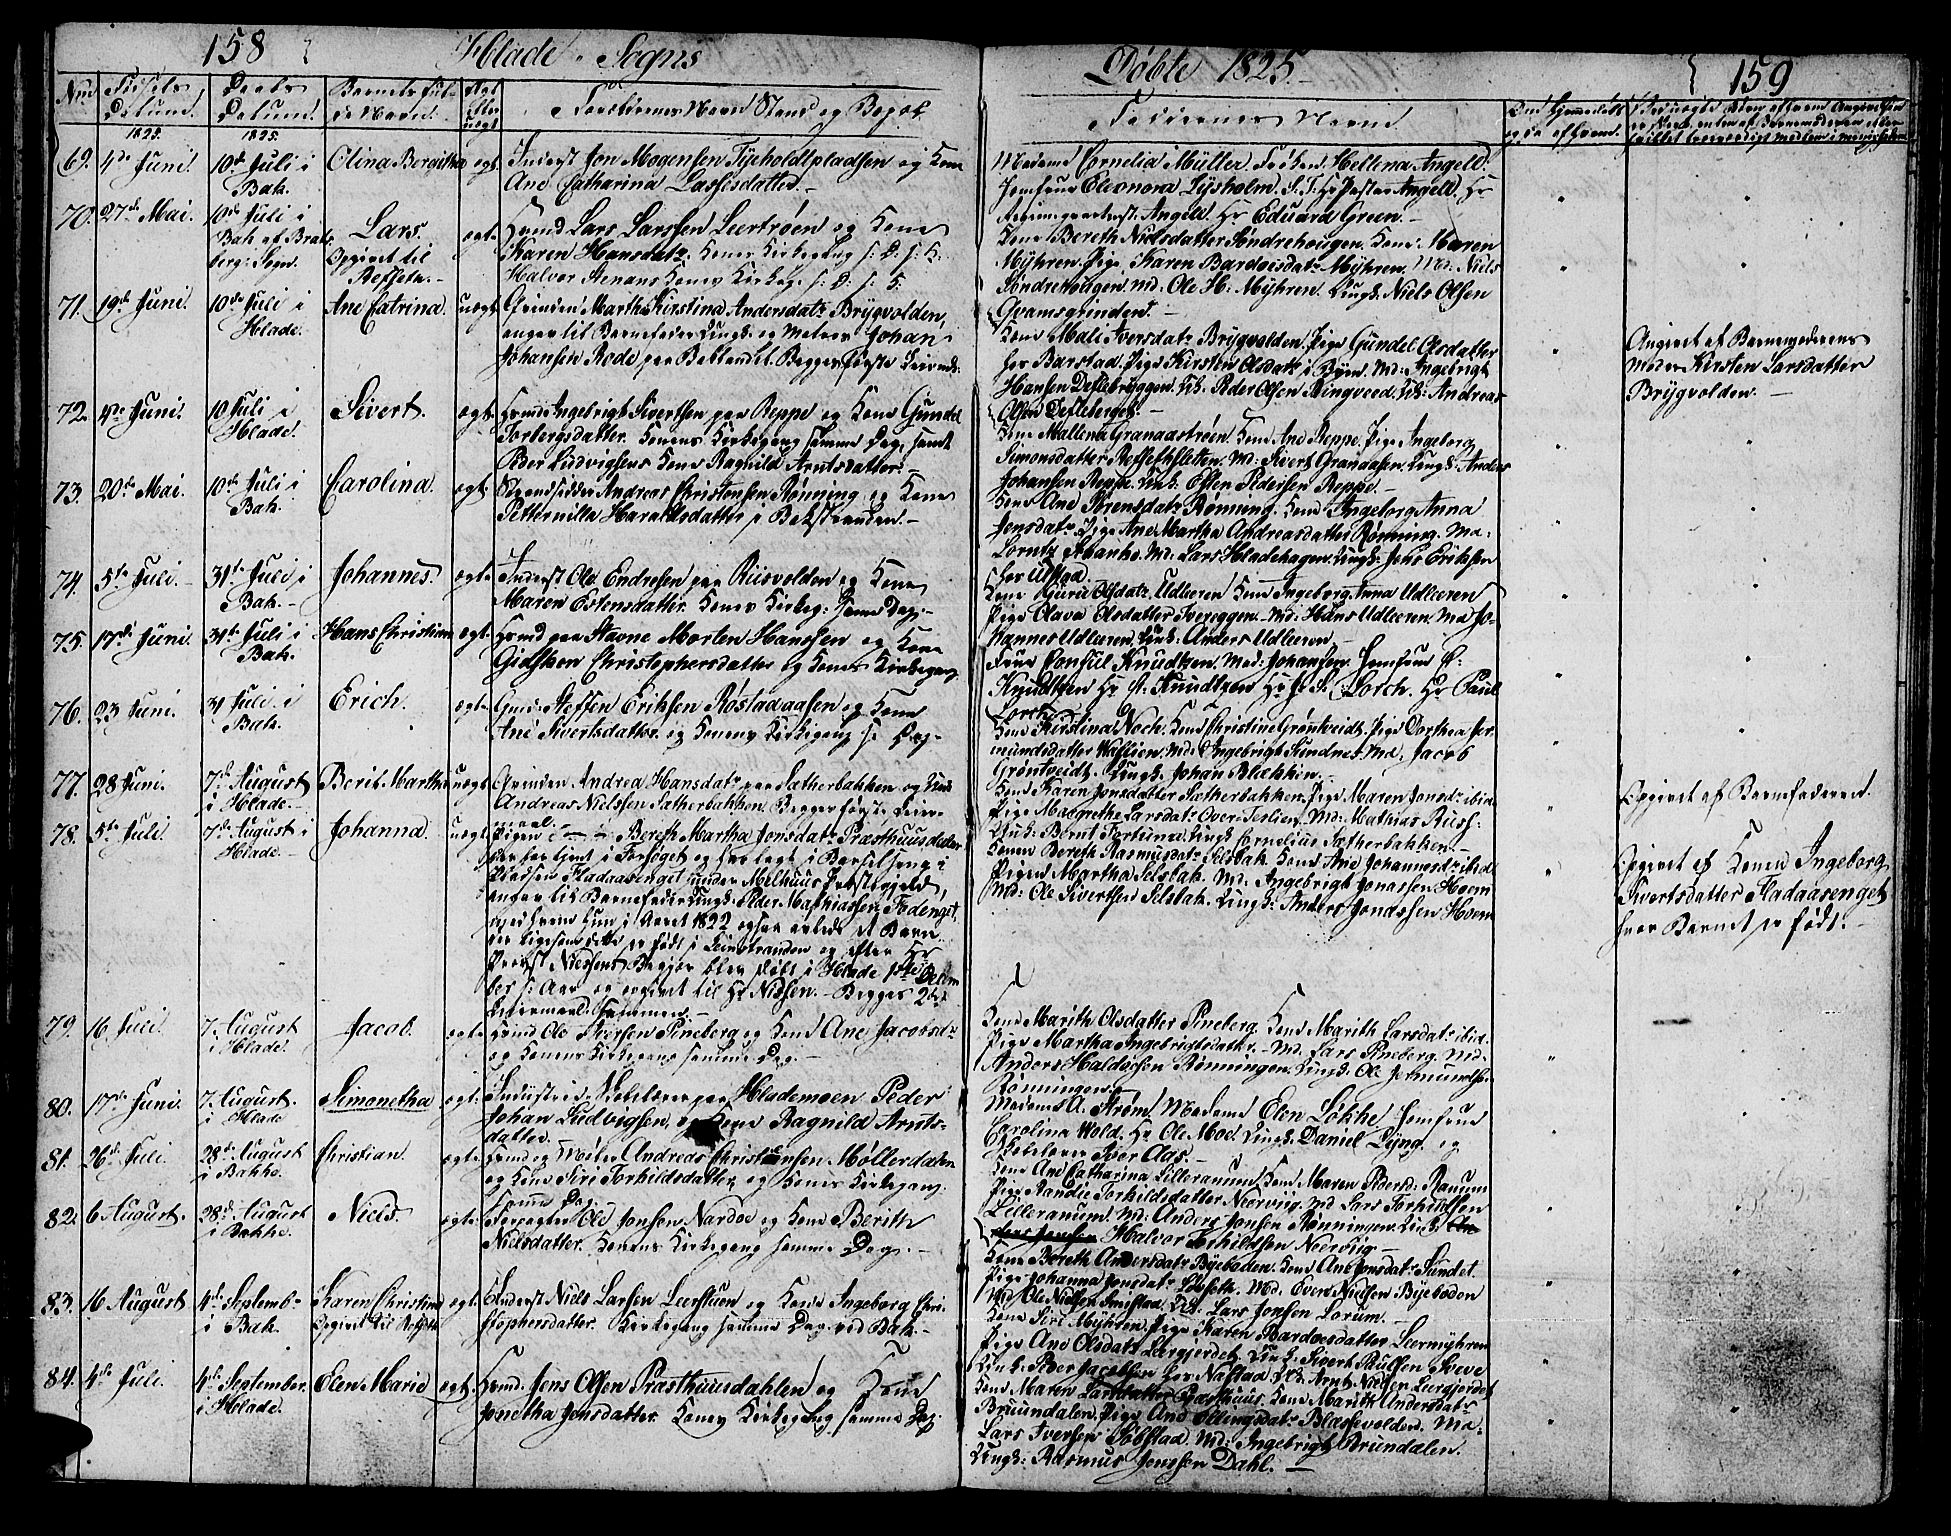 158
Hlade Sogns
Døbte 1825.
159
Nro
Fødsels Datum.
Daabs Datum.
Barnets fulde Navn.
Ægt eller uægt
Forældrenes Navn Stand og Bopæl
Faddernes Navne.
1825. 1825.
69. 4de Juni. 10de Juli i Bak. Olina Bergitha ægt.
Inderst Jon Mogensen Tyholdtpladsen og Kone
Ane Catharina Lassesdatter.
Madame Cornelia Müller. Frøken Hellena Angell.
Jomfrue Eleonora Lysholm. S. T. Hr Pastor Angell. Hr
Angell. Hr Eduard Green.
70. 27de Mai. 10de Juli i Bak af Bratsberg Sogn. Lars. Opgivet til ægte
Huusmd Lars Larssen Leertrøen og Kone
Karen Hansdatr. Konens Kirkegang s: D: s: K:
Halvor Stenans Kones Kirkeg: s: D: s: S.
Kone Bereth Nielsdatter Søndrehougen. Kone Maren
Myhren. Pige Karen Bardoesdatr Myhren. Md: Niels
Søndrehougen. Md. Ole H. Myhren. Ungk. Niels Olsen
Qvamsgrinden.
71. 19de Juni. 10de Juli i Hlade. Ane Catrina. uægt
Qvinden Martha Kirstina Andersdatr Brygvolden,
angav til Barnefader Ungk. og Matros Johan
Johansen Rode paa Baklandet. Begges første Leierm:
Kone Mali Iversdatr Brygvolden. Pige Gundel Olsdatter
hos Barstad. Pige Kirsten Olsdatr i Byen. Md: Ingebrigt
Hansen Deflebryggen. Uk: Peder Olsen Ringveed. Uk: Andreas
Olsen Defleberget.
Angivet af Barnemoderens
Moder Kirsten Larsdatter
Brygvolden.
72. 4de Juni. 10 Juli i Hlade. Sivert. ægt.
Huusmd Ingebrigt Sivertsen paa Reppe og Kone Gundel
Torbergsdatter. Konens Kirkegang samme Dag, samt
Peder Ludvigsens Kone Ragnild Arntsdatter.
Kone Mallena Granaastrøen. Kone Ane Reppe. Pige Ingeborg
Simonsdatter. Md: Sivert Granaasen. Ungk. Anders
Johansen Reppe. Ungk: Esten Pedersen Reppe.
73. 20de Mai. 10de Juli i Bak. Carolina. ægt
Strandsidder Andreas Christensen Rønning og Kone
Petternilla Haraldsdatter i Bakstranden.
Kone Ane Sørensdatr Rønning. Kone Ingeborg Anna
Jensdatr. Pige Ane Martha Andreasdatter Rønning. Ma:
Lorntz Abanke. Md. Lars Hladehagen. Ungk: Jens Eriksen
hos Ulstad.
74. 5te Juli. 31te Juli i Bak. Johannes. ægte
Inderst Ole Endresen paa Riisvolden og Kone
Maren Estensdatter. Kones Kirkeg: samme Dag.
Kone Guru Olsdatr Udleeren. Kone Ingeborg Anna Udleeren
Pige Olava Olsdatter. Md: Hans Udleeren. Md Jo-
hannes Udleeren. Ungk: Anders Udleeren.
75. 17de Juni. 31te Juli i Bak. Hans Christian ægt.
Huusmd paa Stavne Morten Hanssen og Kone
Gidsken Christophersdatter og Kones Kirkegang.
Frue Consul Knudtzon. Mad: Johansen. Jomfrue C:
Knudtzon. Hr C: Knudtzon. Hr H. S. Lorch. Hr Paul
Lorch.
76. 23 Juni. 31 Juli i Bak. Erich. ægte
Steffen Eriksen Rostadaasen og Kone
Ane Sivertsdatter. og Konens Kirkegang s: Dag.
Kone Kirstina Noch. Kone Christine Grøntveidt. Pige Dorthea Jer-
mundsdatter Willien. Md: Ingebrigt Sundnes. Md. Jacob
Grøntveidt. Ungk. Johan Blekken.
77. 28 Juni. 7de August i Hlade. Berit Martha uægt
Qvinden Andrea Hansdatr paa Sætherbakken og Ungk
Andreas Nielssen Sætherbakken. Begges første Leier-
maal.
Kone Karen Jonsdatter Sætherbakken. Pige Maren Jonsdr ibid.
Pige Margrethe Larsdatr Over-Teslien. Md: Mathias Russ:
Ungk: Bernt Fortuna. Ungk Cornelius Sætherbakken.
Opgivet af Barnefaderen.
78. 5te Juli. 7de August i Hlade. Johanna. uægt
Pigen Bereth Martha Jonsdatr Præsthuusdalen
der har tjent i Forsøget og har lagt i Barselseng i
Pladsen Hladaasenget under Melhuus Præstegjeld,
angav til Barnefader Ungk: Peder Mathiassen Fodenget,
med hvem hun i Aaret 1822 ogsaa avlede et Barn
der ligesom dette er født i Leinstranden og efter Hr
Provst Nissens Begjær blev døbt i Hlade 1ste Decem
ber s: Aar og opgivet til Hr Nissen. Begges 2det
Leiermaal sammen.
Konen Bereth Rasmusdatr Selsbak. Kone Ane Johannesdatr ibid.
Pigen Martha Selsbak. Md. Ingebrigt Jonassen Hoem
Md: Ole Sivertsen Selsbak. Ungk: Anders Jonassen Hoem
Opgivet af Konen Ingeborg
Sivertsdatter Hladaasenget
hvor Barnet er født.
79. 16 Juli. 7 August i Hlade. Jacob. ægte
Huusmd Ole Iversen Pineberg og Kone Ane Jacobsdr
og Konens Kirkegang samme Dag.
Kone Marith Olsdatter Pineberg. Kone Marith Larsdatr ibid.
Pige Martha Ingebrigtsdatter. Md. Lars Pineberg. Md.
Anders Haldosen Rønningen. Ungk. Ole Jermundsen
Rønningen.
80. 17de Juni. 7 August i Hlade Simonetha ægte.
Industrie Skolelærer paa Hlademoen Peder
Johan Ludvigsen, og Kone Ragnild Arnts-
datter.
Madame A. Strøm. Madame Elen Løkke. Jomfrue
Carolina Wold. Hr Ole Moe. Ungk. Daniel Lyng. og
Skolelærer Iver Aas.
81. 26de Juli. 28de August i Bakke. Christian. ægte
Huusmd og Møller Andreas Christiansen Møllerdalen
og Kone Siri Torkildsdatter og Kones Kirkegang
samme Dag.
Kone Ane Catharina Lilleranum. Kone Maren Pedersd: Ranum
Pige Randie Torkildsdatter Neerviig. Md Lars Torkildsen
Lilleranum. Md: Anders Jonsen Rønningen. Ungk:
Halvor Torkildsen Neerviig.
82. 6 August. 28de August i Bakke. Niels. ægte
Ole Jonsen Nardoe og Kone Berith
Nielsdatter. Konens Kirkegang samme Dag.
Kone Bereth Andersdatr Byebøden. Kone Ane Jonsdatr Sundet.
Pige Johanna Jonsdatr. Md. Even Nielsen Byebøden
Md Ole Nielsen Smistad. Uk. Lars Jonsen Lorum.
83. 16 August 4de Septembr i Bak. Karen Christina Opgivet til ægt.
Inderst Niels Larsen Leerstuen og Kone Ingeborg Chri-
stophersdatter. Kirkegang samme Dag ved Bak.
Kone Siri Myhren. Pige Karen Bardoesdatter Leermyhren
Pige Ane Olsdatr Leergjerdet. Ungk. Sivert Paulsen Steve
Ungk: Peder Jacobsen hos Nastad. Uk: Arnt Nielsen Leergjerdet
84. 4de Juli. 4de September i Hlade. Elen Marie ægt.
Huusmd. Jens Olsen Præsthuusdahlen og Kone
Jonetha Jensdatter. Kones Kirkegang samme Dag.
Kone Maren Larsdatter Præsthuus. Kone Marith Andersdatr
Bruundalen. Pige Ane Ellingsdatr Blæssevolden. Ma:
Lars Iversen Sobstad. Md: Ingebrigt Brundalen.
Ungk: Rasmus Jenssen Dahl.